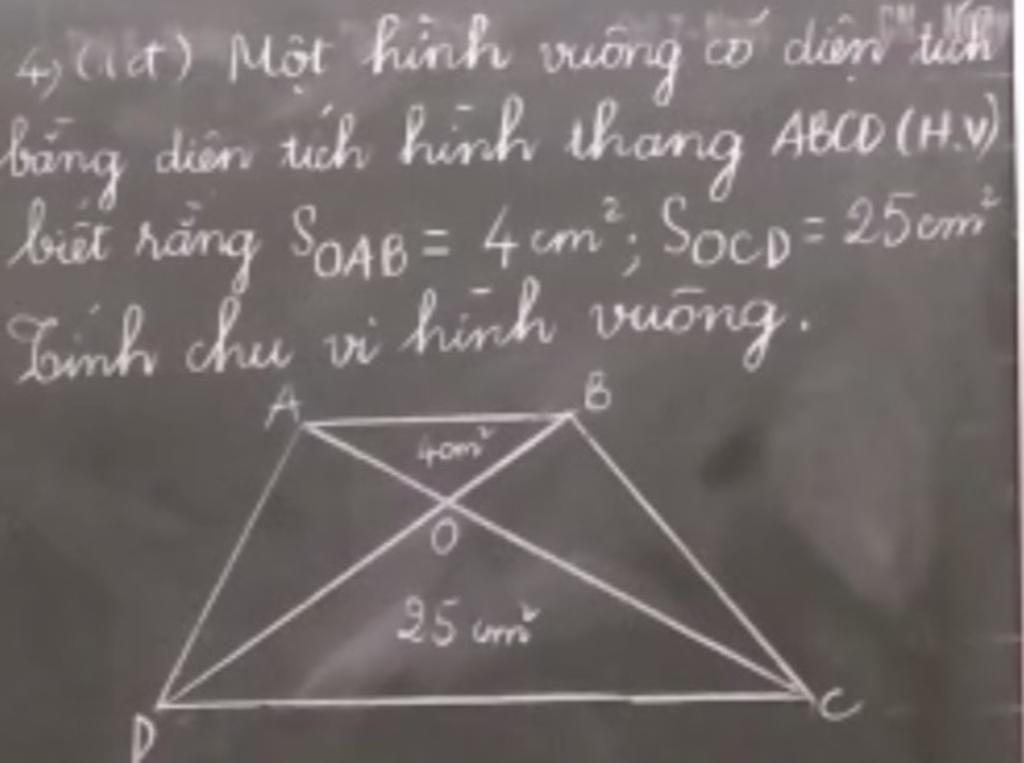 4) (1đ) Một hình vuông có diện tích
bằng diện tích hình thang ABCD (H.V)
biết rằng S_OAB = 4 cm²; S_OCD = 25cm²
Tính chu vi hình vuông.
A
B
4cm²
O
25 cm²
D
C